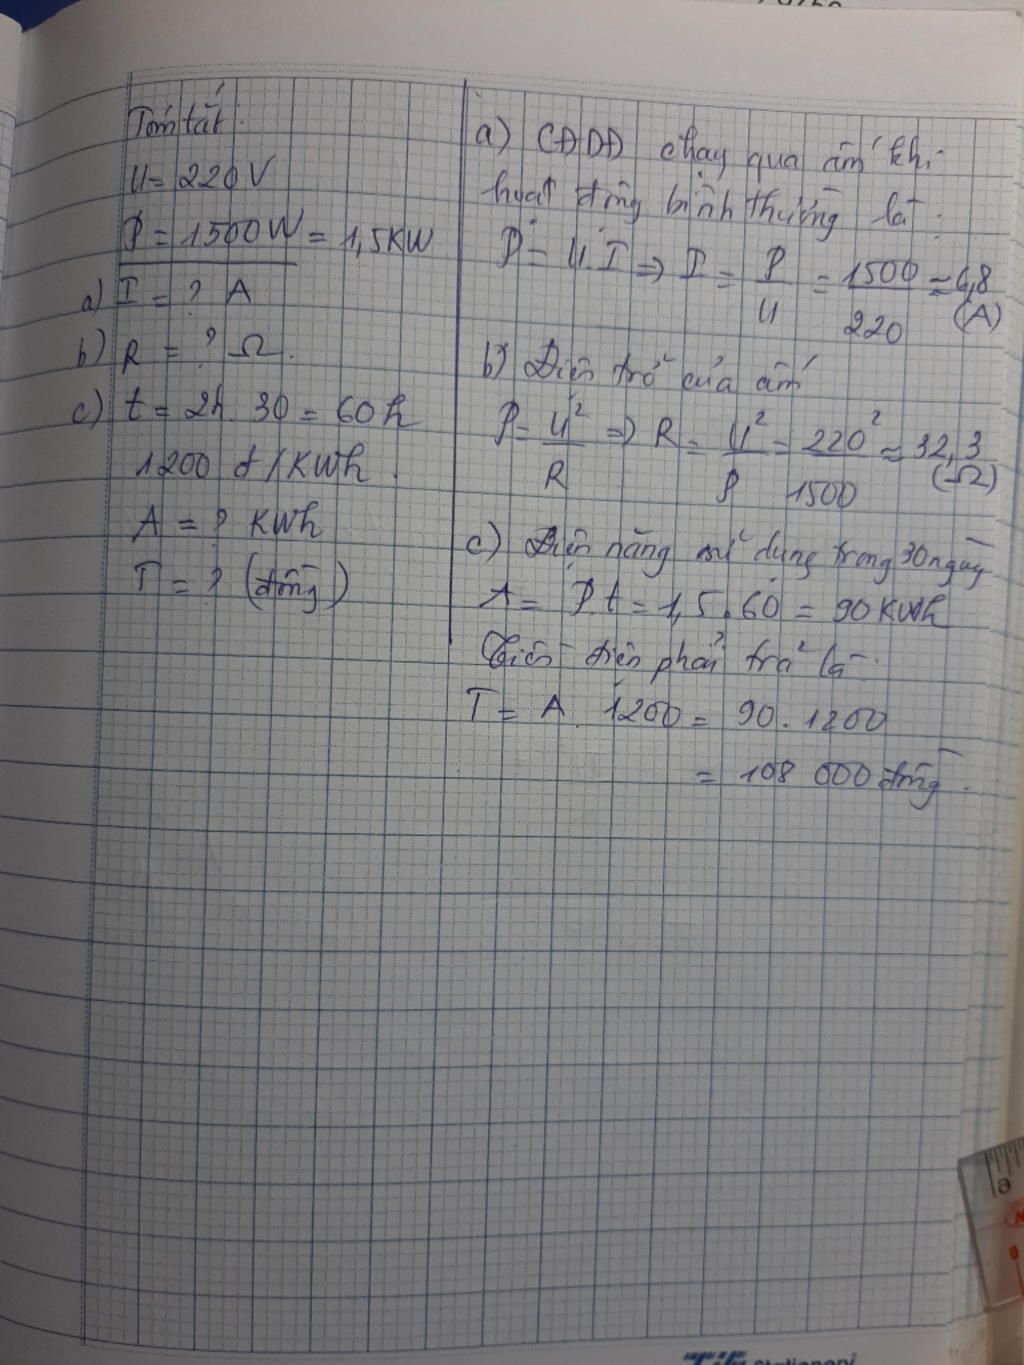 Tóm tắt:
U = 220V
P = 1500W = 1,5KW
a) I = ? A
b) R = ? Ω.
c) t = 2h. 30 = 60h
1200 đ/KWh.
A = ? KWh
T = ? (đồng)
a) CĐDĐ chạy qua ấm khi
hoạt động bình thường là:
P = U.I => I = P/U = 1500/220 = 6,8 (A)
b) Điện trở của ấm
P = U²/R => R = U²/P = 220²/1500 ≈ 32,3 (Ω)
c) Điện năng sử dụng trong 30 ngày
A = P.t = 1,5.60 = 90KWh
Tiền điện phải trả là:
T = A. 1200 = 90. 1200
= 108 000 đồng.